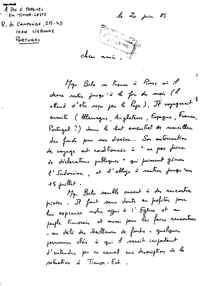 A PAZ É POSSÍVEL
EM TIMOR-LESTE
R. de Campolide, 215-4D
1000 LISBONNE
PORTUGAL
le 20 juin 85
Chers amis,
Mgr. Belo se trouve à Rome où il
devra rester jusqu'à la fin du mois (il
attend d'être reçu par le Pape). Il voyagerait
ensuite (Allemagne, Angleterre, Espagne, France,
Portugal?) dans le but essentiel de recueillir
des fonds pour son diocèse. Son autorisation
de voyage est conditionnée à "ne pas faire
de déclarations publiques" qui puissent gêner
l'Indonésie, et d'être à rentrer jusqu'au
15 juillet.
Mgr. Belo semble ouvert à des rencontres
privées. Il faut sans doute en profiter pour
lui exprimer notre appui à l'Église et au
peuple timorais et aussi pour lui faire rencontrer
au delà des bailleurs de fonds - quelques
personnes clés à qui il serait important
d'entendre par sa bouche une description de la
situation à Timor-Est.